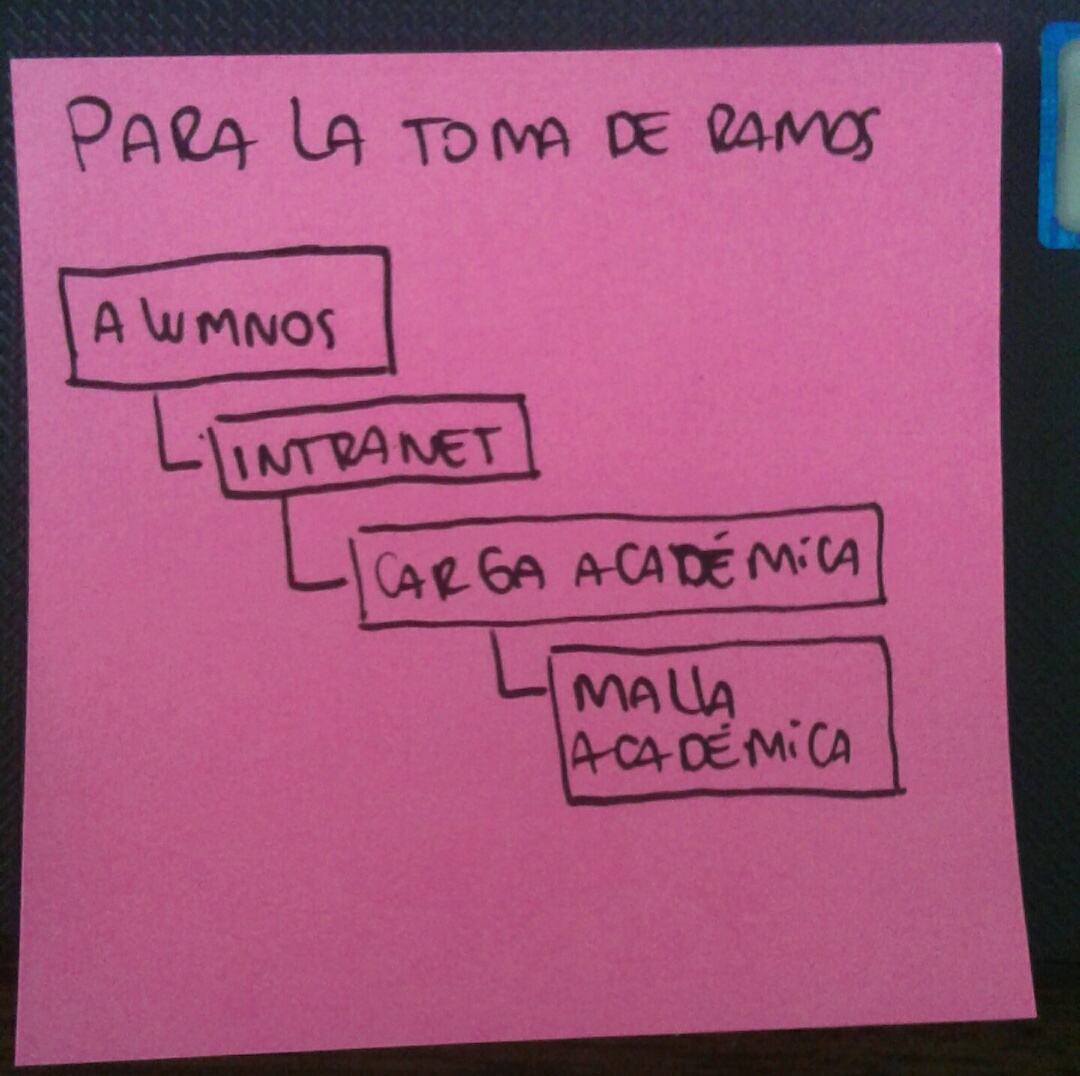 PARA LA TOMA DE RAMOS
ALUMNOS
INTRANET
CARGA ACADÉMICA
MALLA
ACADÉMICA